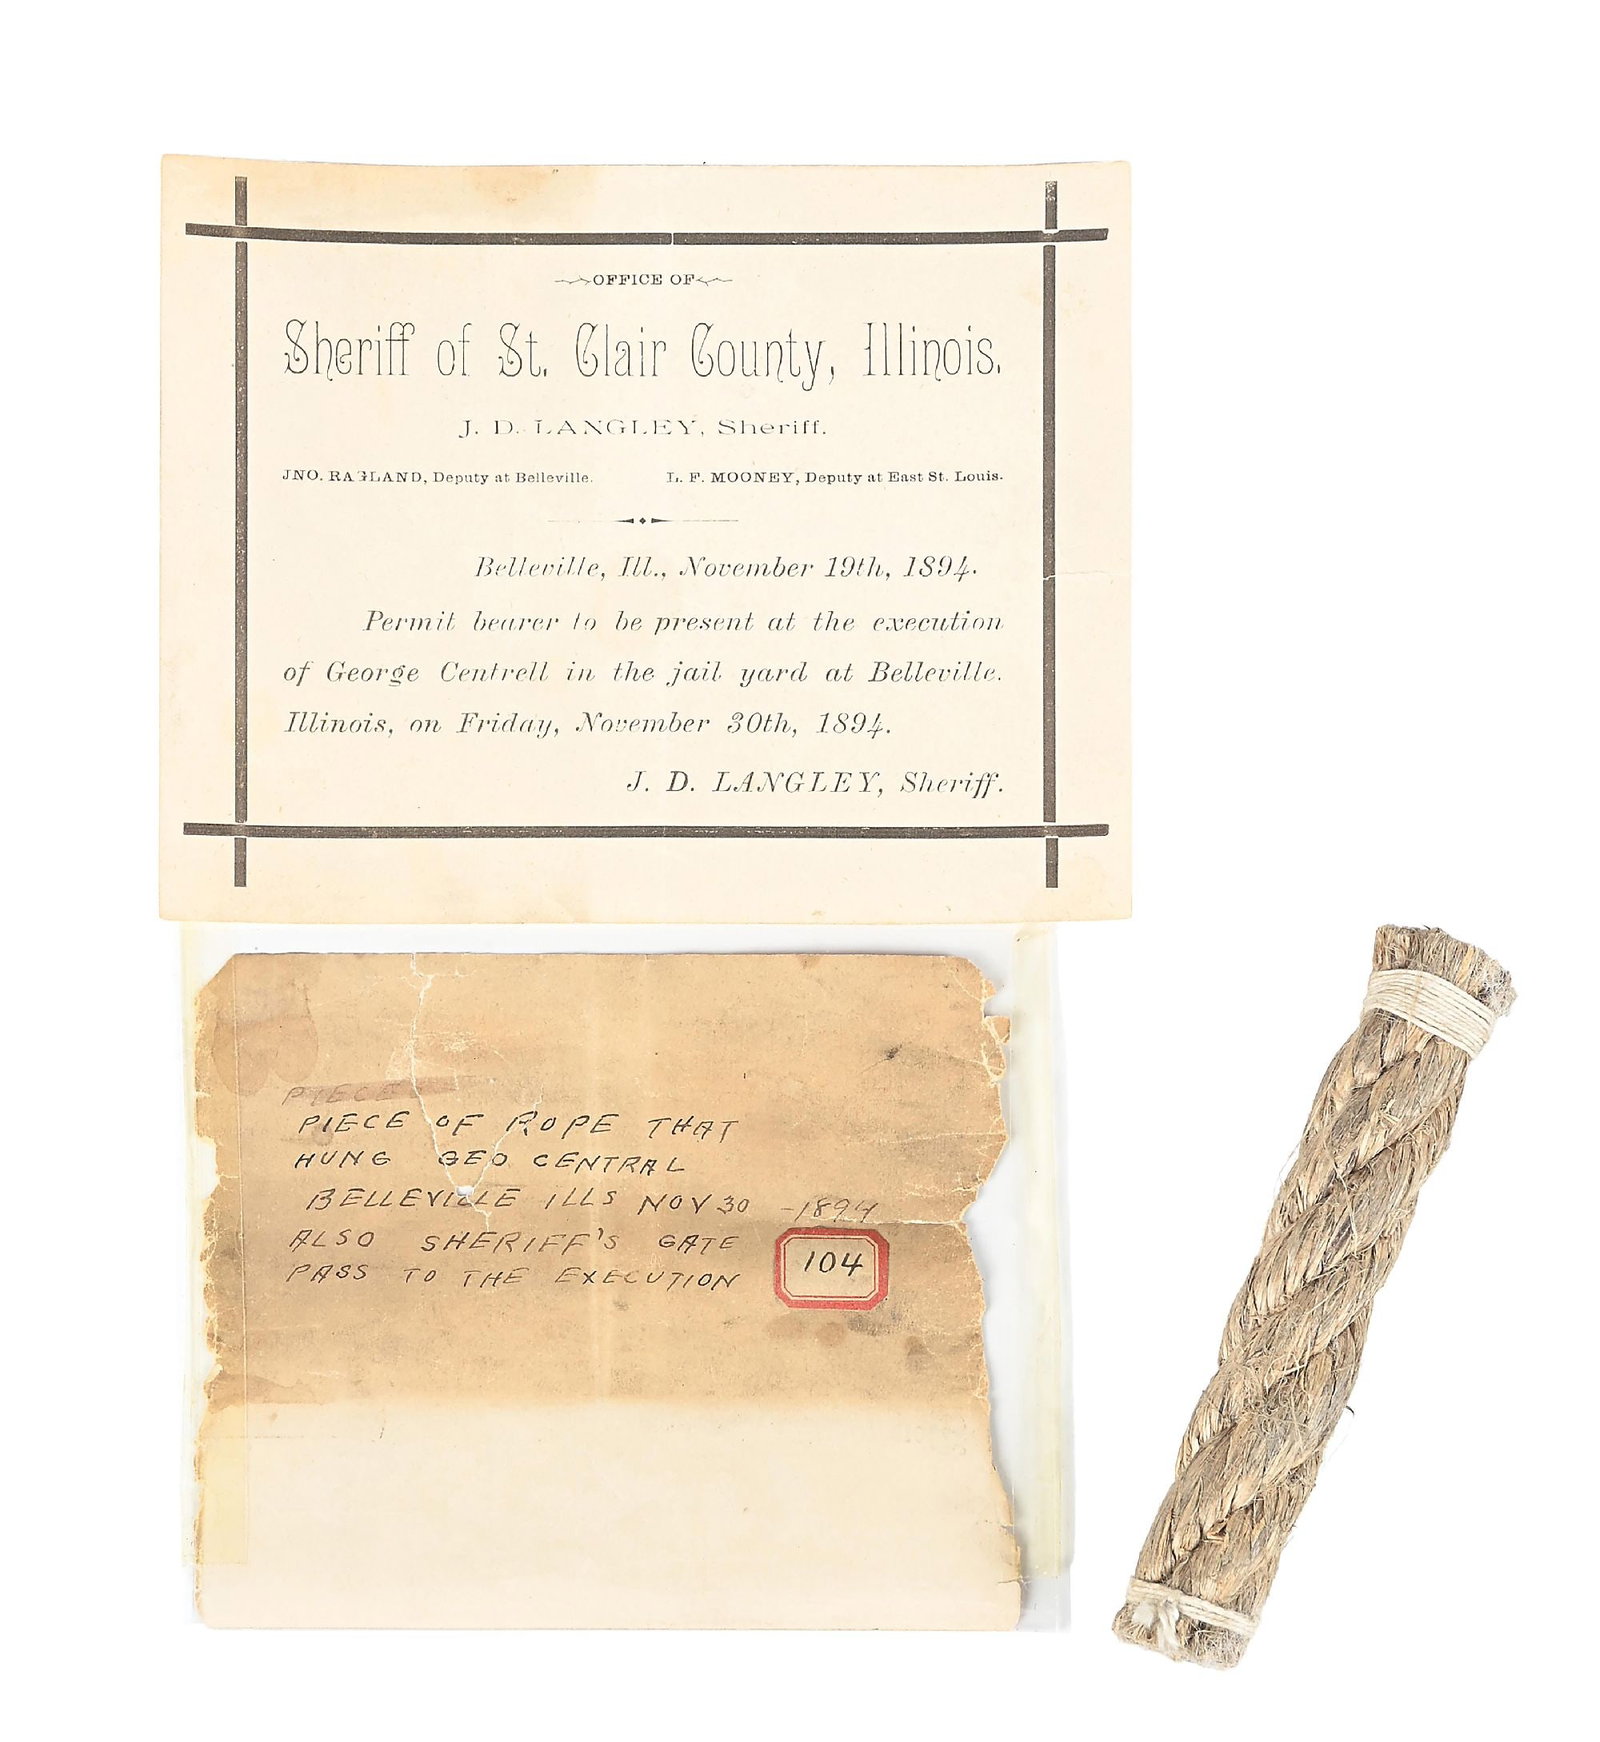 OFFICE OF
Sheriff of St. Clair County, Illinois.
J. D. LANGLEY, Sheriff.
JNO. RAGLAND, Deputy at Belleville. L. F. MOONEY, Deputy at East St. Louis.
Belleville, Ill., November 19th, 1894.
Permit bearer to be present at the execution
of George Centrell in the jail yard at Belleville.
Illinois, on Friday, November 30th, 1894.
J. D. LANGLEY, Sheriff.
PIECE
PIECE OF ROPE THAT
HUNG GEO CENTRAL
BELLEVILLE ILLS NOV 30 -1894
ALSO SHERIFF'S GATE
PASS TO THE EXECUTION
104